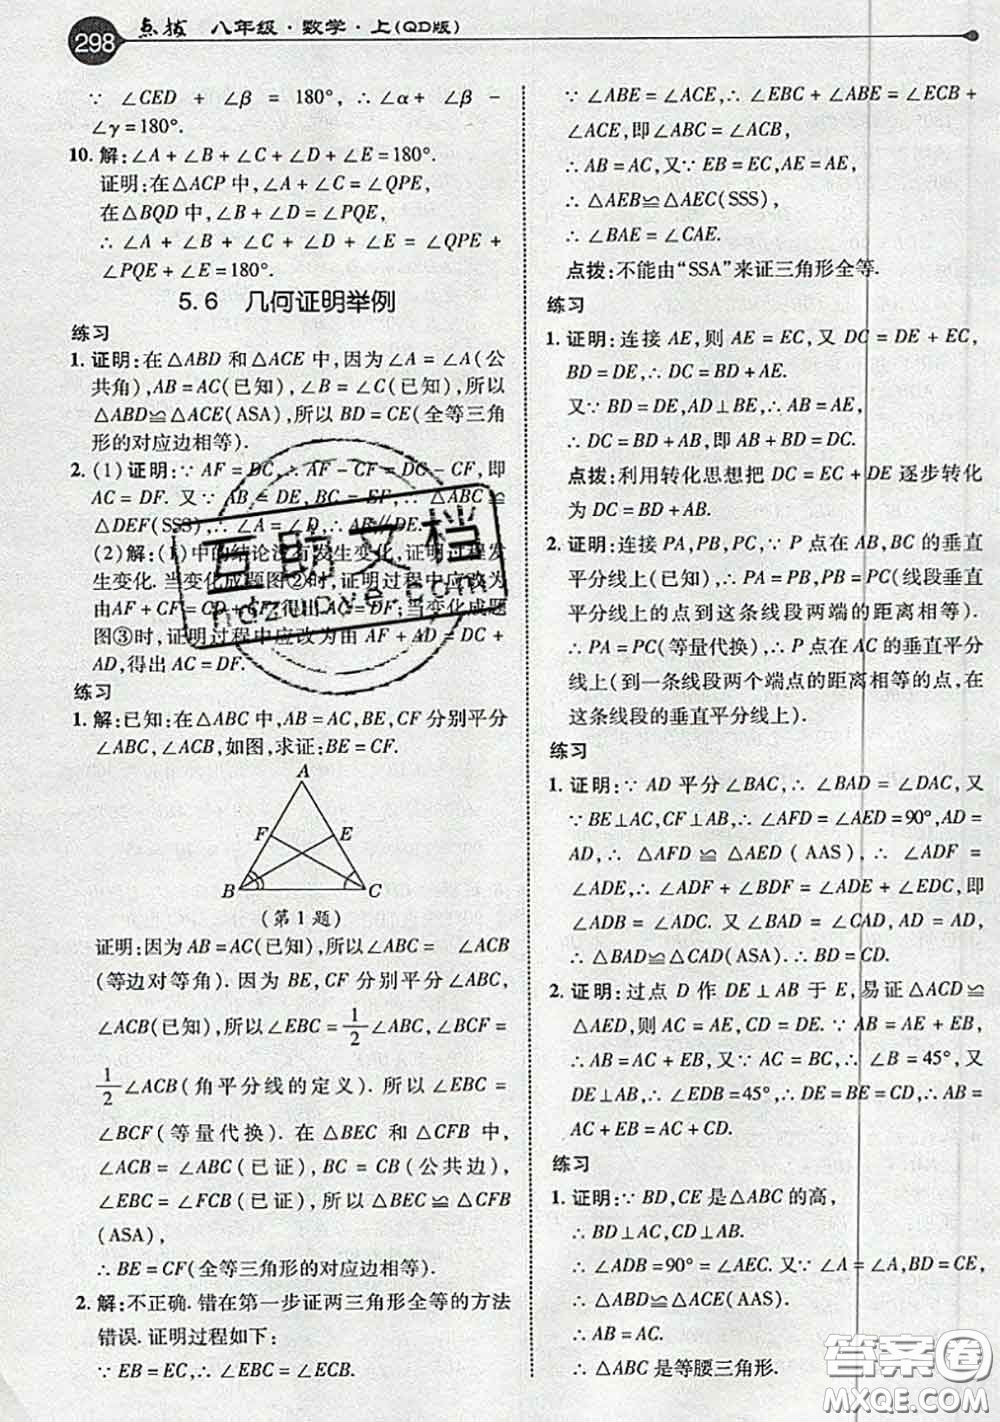 298 点拨 八年级·数学·上(QD版)
∵ ∠CED + ∠β = 180°, ∴∠α+ ∠β −
∠γ=180°.
10. 解:∠A + ∠B + ∠C + ∠D + ∠E =180°.
证明:在△ACP 中,∠A + ∠C = ∠QPE,
在△BQD 中,∠B + ∠D = ∠PQE,
∴ ∠A + ∠B + ∠C + ∠D + ∠E = ∠QPE +
∠PQE + ∠E =180°.
5.6 几何证明举例
练习
1. 证明:在△ABD 和△ACE 中,因为∠A = ∠A(公
共角),AB = AC(已知),∠B = ∠C(已知),所以
△ABD≌△ACE(ASA),所以 BD = CE(全等三角
形的对应边相等).
2. (1)证明:∵ AF = DC,∴ AF − CF = DC − CF,即
AC = DF. 又∵ AB = DE,BC = EF,∴ △ABC ≌
△DEF(SSS),∴ ∠A = ∠D,∴ AB∥DE.
(2)解:(1)中的结论没有发生变化,证明过程发
生变化. 当变化成题图②时,证明过程中应改为
由 AF + CF = CD + CF,得出 AC = DF;当变化成题
图③时,证明过程中应改为由 AF + AD = DC +
AD,得出 AC = DF.
练习
1. 解:已知:在△ABC 中,AB = AC,BE,CF 分别平分
∠ABC,∠ACB,如图,求证:BE = CF.
A
F E
B C
(第 1 题)
证明:因为 AB = AC(已知),所以∠ABC = ∠ACB
(等边对等角). 因为 BE,CF 分别平分∠ABC,
∠ACB(已知),所以∠EBC = 1/2 ∠ABC,∠BCF =
1/2 ∠ACB(角平分线的定义). 所以∠EBC =
∠BCF(等量代换). 在△BEC 和△CFB 中,
∠ACB = ∠ABC(已证),BC = CB(公共边),
∠EBC = ∠FCB(已证),所以△BEC ≌ △CFB
(ASA),
∴ BE = CF(全等三角形的对应边相等).
2. 解:不正确. 错在第一步证两三角形全等的方法
错误. 证明过程如下:
∵ EB = EC,∴ ∠EBC = ∠ECB.
∵ ∠ABE = ∠ACE,∴ ∠EBC + ∠ABE = ∠ECB +
∠ACE,即∠ABC = ∠ACB,
∴ AB = AC,又∵ EB = EC,AE = AE,
∴ △AEB≌△AEC(SSS),
∴ ∠BAE = ∠CAE.
点拨:不能由“SSA”来证三角形全等.
练习
1. 证明:连接 AE,则 AE = EC,又 DC = DE + EC,
BD = DE,∴ DC = BD + AE.
又∵ BD = DE,AD⊥BE,∴ AB = AE,
∴ DC = BD + AB,即 AB + BD = DC.
点拨:利用转化思想把 DC = EC + DE 逐步转化
为 DC = BD + AB.
2. 证明:连接 PA,PB,PC,∵ P 点在 AB,BC 的垂直
平分线上(已知),∴ PA = PB,PB = PC(线段垂直
平分线上的点到这条线段两端的距离相等).
∴ PA = PC(等量代换).∴ P 点在 AC 的垂直平分
线上(到一条线段两个端点的距离相等的点,在
这条线段的垂直平分线上).
练习
1. 证明:∵ AD 平分∠BAC,∴ ∠BAD = ∠DAC,又
∵ BE⊥AC,CF⊥AB,∴ ∠AFD = ∠AED =90°,AD =
AD,∴ △AFD ≌ △AED (AAS),∴ ∠ADF =
∠ADE,∴ ∠ADF + ∠BDF = ∠ADE + ∠EDC,即
∠ADB = ∠ADC. 又 ∠BAD = ∠CAD,AD = AD,
∴ △BAD≌△CAD(ASA).∴ BD = CD.
2. 证明:过点 D 作 DE⊥AB 于 E,易证△ACD≌
△AED,则 AC = AE,CD = DE.∵ AB = AE + EB,
∴ AB = AC + EB,又∵ AC = BC,∴ ∠B = 45°,又
DE⊥AB,∴ ∠EDB =45°,∴ DE = BE = CD,∴ AB =
AC + EB = AC + CD.
练习
1. 证明:∵ BD,CE 是△ABC 的高,
∴ BD⊥AC,CD⊥AB.
∴ ∠ADB =90° = ∠AEC,又∵∠A = ∠A,BD = CE,
∴ △ABD≌△ACE(AAS).
∴ AB = AC.
∴ △ABC 是等腰三角形.
互助文档
hdzuoye.com
答案圈
MXQE.COM